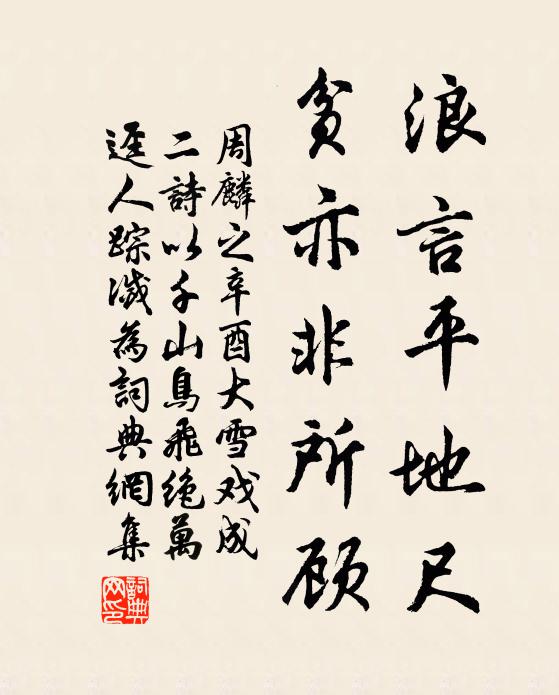 浪言平地尺
貧亦非所顾
周麟之辛酉大雪戏成
二詩以千山鳥飛絶萬
逕人踪滅為詞典網集
詞典网印